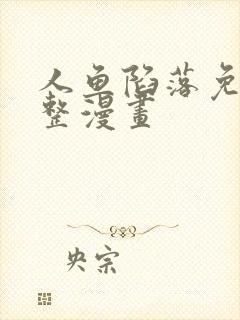 人鱼陷落免
整漫畫
央宗